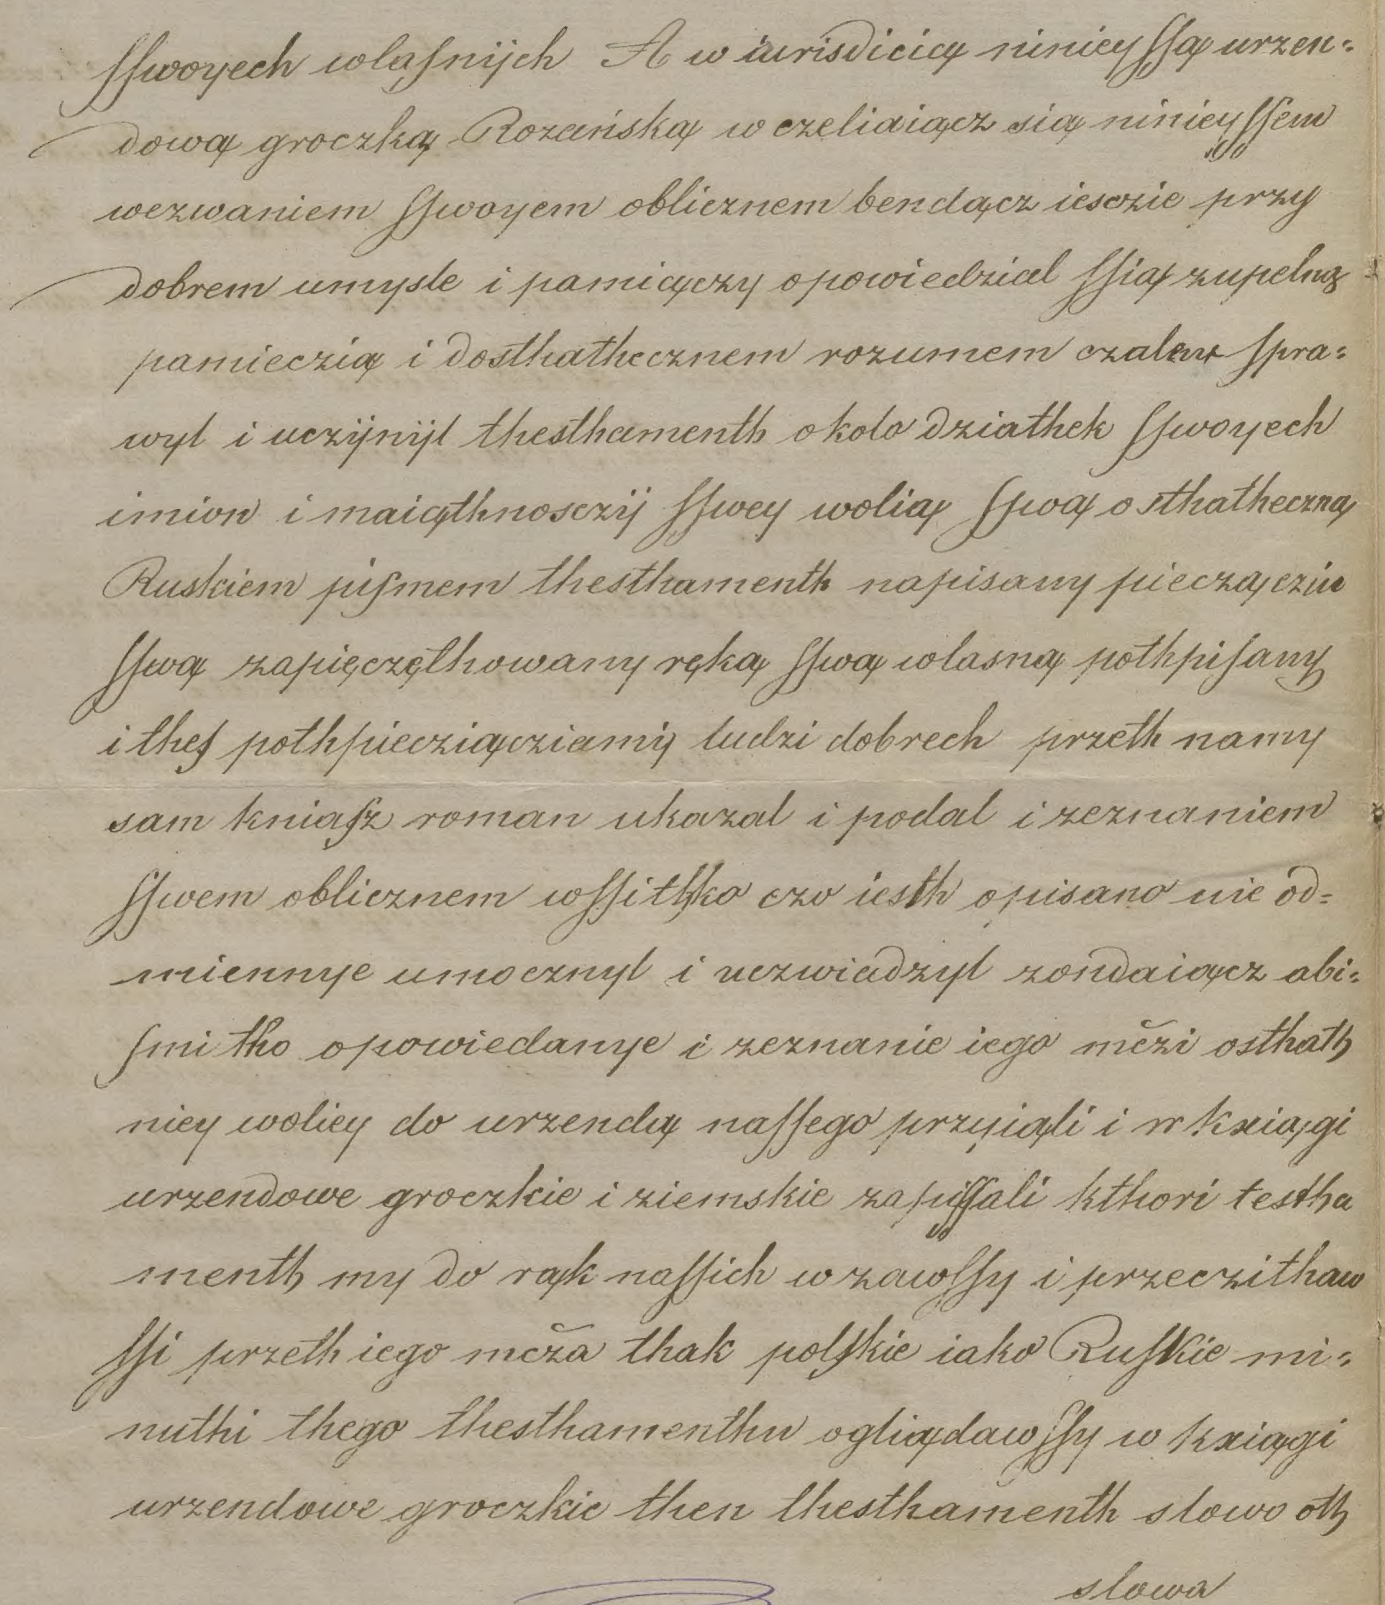 sswoyech wlasnijch A w iurisdicią niniey ssą urzen=
dową groczką Rozańską w czeliaiącz sią niniey ssem
wezwaniem sswoyem oblicznem bendącz iesczie przy
dobrem umysle i pamiączy opowiedzial ssią zupelną
pamieczią i dosthathecznem rozumem czalem spra=
wyl i uczijnijl thesthamenth okolo dziathek sswoyech
imion i maiąthnosczij sswey wolią sswą osthatheczną
Ruskiem pismem thesthamenth napisany pieczączią
sswą zapięczęthowany ręką sswą wlasną pothpisany
i thes pothpiecziącziamij ludzi dobrech przeth namy
sam kniasz roman ukazal i podal i zeznaniem
sswem oblicznem wssithko czo iesth opisano nie od=
miennye umocznyl i uczwiadzyl zondaiącz abi=
smi tho opowiedanye i zeznanie iego mčzi osthath
niey woliey do urzendą nassego przyiąli i w kxiągi
urzendowe groczkie i ziemskie zapissali kthori testha
menth my do rąk nassich w zawssy i przeczithaw
ssi przeth iego mčza thak polskie iako Ruskie mi=
nuthi thego thesthamenthu ogliądawssy w kxiągi
urzendowe groczkie then thesthamenth slowo oth
slowa